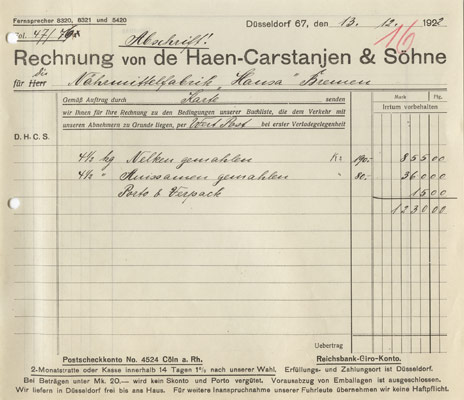 Fernsprecher 8320, 8321 und 5420
Düsseldorf 67, den 13. 12. 1922
Fol. 47/
Abschrift!
Rechnung von de Haen-Carstanjen & Söhne
die
für Herr Nährmittelfabrik „Hansa" Bremen
Mark Pfg.
Gemäß Auftrag durch Karte senden
Irrtum vorbehalten
wir Ihnen für Ihre Rechnung zu den Bedingungen unserer Buchliste, die dem Verkehr mit
unseren Abnehmern zu Grunde liegen, per Wert Post bei erster Verladegelegenheit
D. H. C. S.
4½ kg Nelken gemahlen K: 190.- 855 00
4½ " gemahlen " 80.- 360 00
Porto & Verpack 15 00
1230 00
Uebertrag
Postscheckkonto No. 4524 Cöln a. Rh. Reichsbank-Giro-Konto.
2-Monatstratte oder Kasse innerhalb 14 Tagen 1% nach unserer Wahl. Erfüllungs- und Zahlungsort ist Düsseldorf.
Bei Beträgen unter Mk. 20.— wird kein Skonto und Porto vergütet. Vorausabzug von Emballagen ist ausgeschlossen.
Wir liefern in Düsseldorf frei bis ans Haus. Für weitere Inanspruchnahme unserer Fuhrleute übernehmen wir keine Haftpflicht.